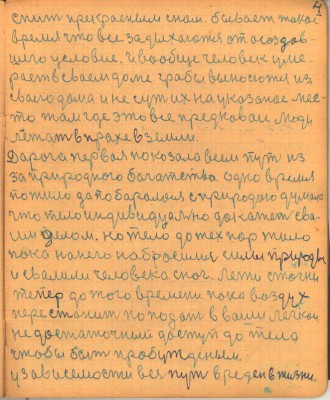 4
спит прекрасным сном. бывает такое
время что все задыхаются от создав-
шего условие. и вообще человек уме-
рает в сваем доме грабы выносются из
сваго дама и несут их на указаное мес-
то там где это все предковаи люди
лежат в прахе в земли.
Дарога первая показала всем пут из
за природного богатства одно время
пожило да поборолося с природаю думало
что тело индивидуально докажет сва-
им делом. но тело до тех пор жило
пока на него набросились силы природы
и свалили человека с ног. лети стогни
тепер до того времени пока воздух
перестанит попадат в ваши легкои
не достаточный доступ до тела
чтобы быт пробужденым.
у зависемости вен пут вреден в жизни.